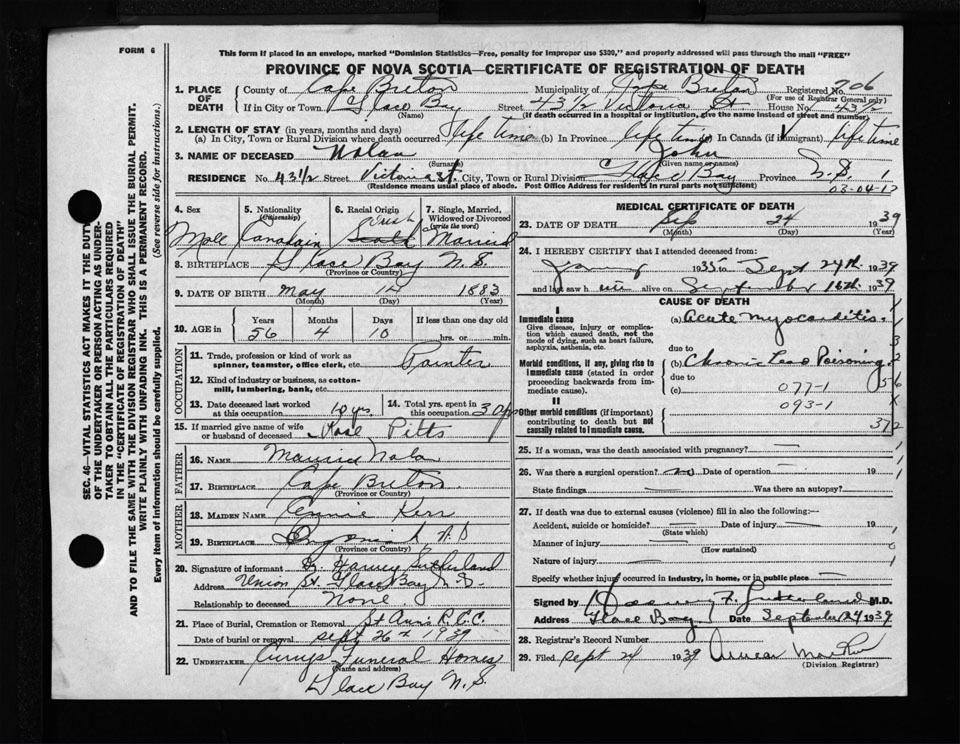 FORM 6
This form if placed in an envelope, marked "Dominion Statistics—Free, penalty for improper use $300," and properly addressed will pass through the mail "FREE"
PROVINCE OF NOVA SCOTIA—CERTIFICATE OF REGISTRATION OF DEATH
SEC. 46—VITAL STATISTICS ACT MAKES IT THE DUTY
OF THE UNDERTAKER OR PERSON ACTING AS UNDER-
TAKER TO OBTAIN ALL THE PARTICULARS REQUIRED
IN THE "CERTIFICATE OF REGISTRATION OF DEATH"
AND TO FILE THE SAME WITH THE DIVISION REGISTRAR WHO SHALL ISSUE THE BURIAL PERMIT.
WRITE PLAINLY WITH UNFADING INK. THIS IS A PERMANENT RECORD.
Every item of information should be carefully supplied. (See reverse side for instructions.)
1. PLACE OF DEATH
County of Cape Breton Municipality of Cape Breton Registered No. 706
(For use of Registrar General only)
If in City or Town Glace Bay Street 43 1/2 Victoria St House No. 43 1/2
(Name) (If death occurred in a hospital or institution, give the name instead of street and number)
2. LENGTH OF STAY (in years, months and days)
(a) In City, Town or Rural Division where death occurred life time (b) In Province life time In Canada (if immigrant) life time
3. NAME OF DECEASED Nolan John
(Surname) (Given name or names)
RESIDENCE No. 43 1/2 Street Victoria St. City, Town or Rural Division Glace Bay Province N.S. 1
(Residence means usual place of abode. Post Office Address for residents in rural parts not sufficient)
03-04-12
4. Sex
5. Nationality (Citizenship)
6. Racial Origin
7. Single, Married, Widowed or Divorced (write the word)
Irish
Male Canadain Married
8. BIRTHPLACE Glace Bay N.S.
(Province or Country)
9. DATE OF BIRTH May 14 1883
(Month) (Day) (Year)
10. AGE in Years Months Days If less than one day old
56 4 10 hrs. or min.
OCCUPATION
11. Trade, profession or kind of work as spinner, teamster, office clerk, etc. Painter
12. Kind of industry or business, as cotton-mill, lumbering, bank, etc.
13. Date deceased last worked at this occupation 10 yrs
14. Total yrs. spent in this occupation 30 yrs
15. If married give name of wife or husband of deceased Rose Pitts
FATHER
16. NAME Maurice Nolan
17. BIRTHPLACE Cape Breton
(Province or Country)
MOTHER
18. MAIDEN NAME Annie Kerr
19. BIRTHPLACE
(Province or Country)
20. Signature of informant Dr. Harvey Sutherland
Address Union St. Glace Bay N.S.
Relationship to deceased None
21. Place of Burial, Cremation or Removal St Ann's R.C.C.
Date of burial or removal Sept 26th 1939
22. UNDERTAKER Currys Funeral Homes
(Name and address)
Glace Bay N.S.
MEDICAL CERTIFICATE OF DEATH
23. DATE OF DEATH Sep 24 1939
(Month) (Day) (Year)
24. I HEREBY CERTIFY that I attended deceased from:
1935 to Sept 24th 1939
and last saw h im alive on September 16th 1939
CAUSE OF DEATH
I
Immediate cause
Give disease, injury or complication which caused death, not the mode of dying, such as heart failure, asphyxia, asthenia, etc.
(a) Acute Myocarditis.
due to
Morbid conditions, if any, giving rise to immediate cause (stated in order proceeding backwards from immediate cause).
(b) Chronic Lead Poisoning
due to
(c) 077-1
093-1
II
Other morbid conditions (if important) contributing to death but not causally related to immediate cause.
1
3
2
56
X
372
25. If a woman, was the death associated with pregnancy?
26. Was there a surgical operation? no Date of operation 19
State findings Was there an autopsy?
27. If death was due to external causes (violence) fill in also the following:—
Accident, suicide or homicide? Date of injury 19
(State which)
Manner of injury
(How sustained)
Nature of injury
Specify whether injury occurred in industry, in home, or in public place
Signed by Harvey F. Sutherland M.D.
Address Glace Bay Date September 24 1939
28. Registrar's Record Number
29. Filed Sept 24 1939
(Division Registrar)